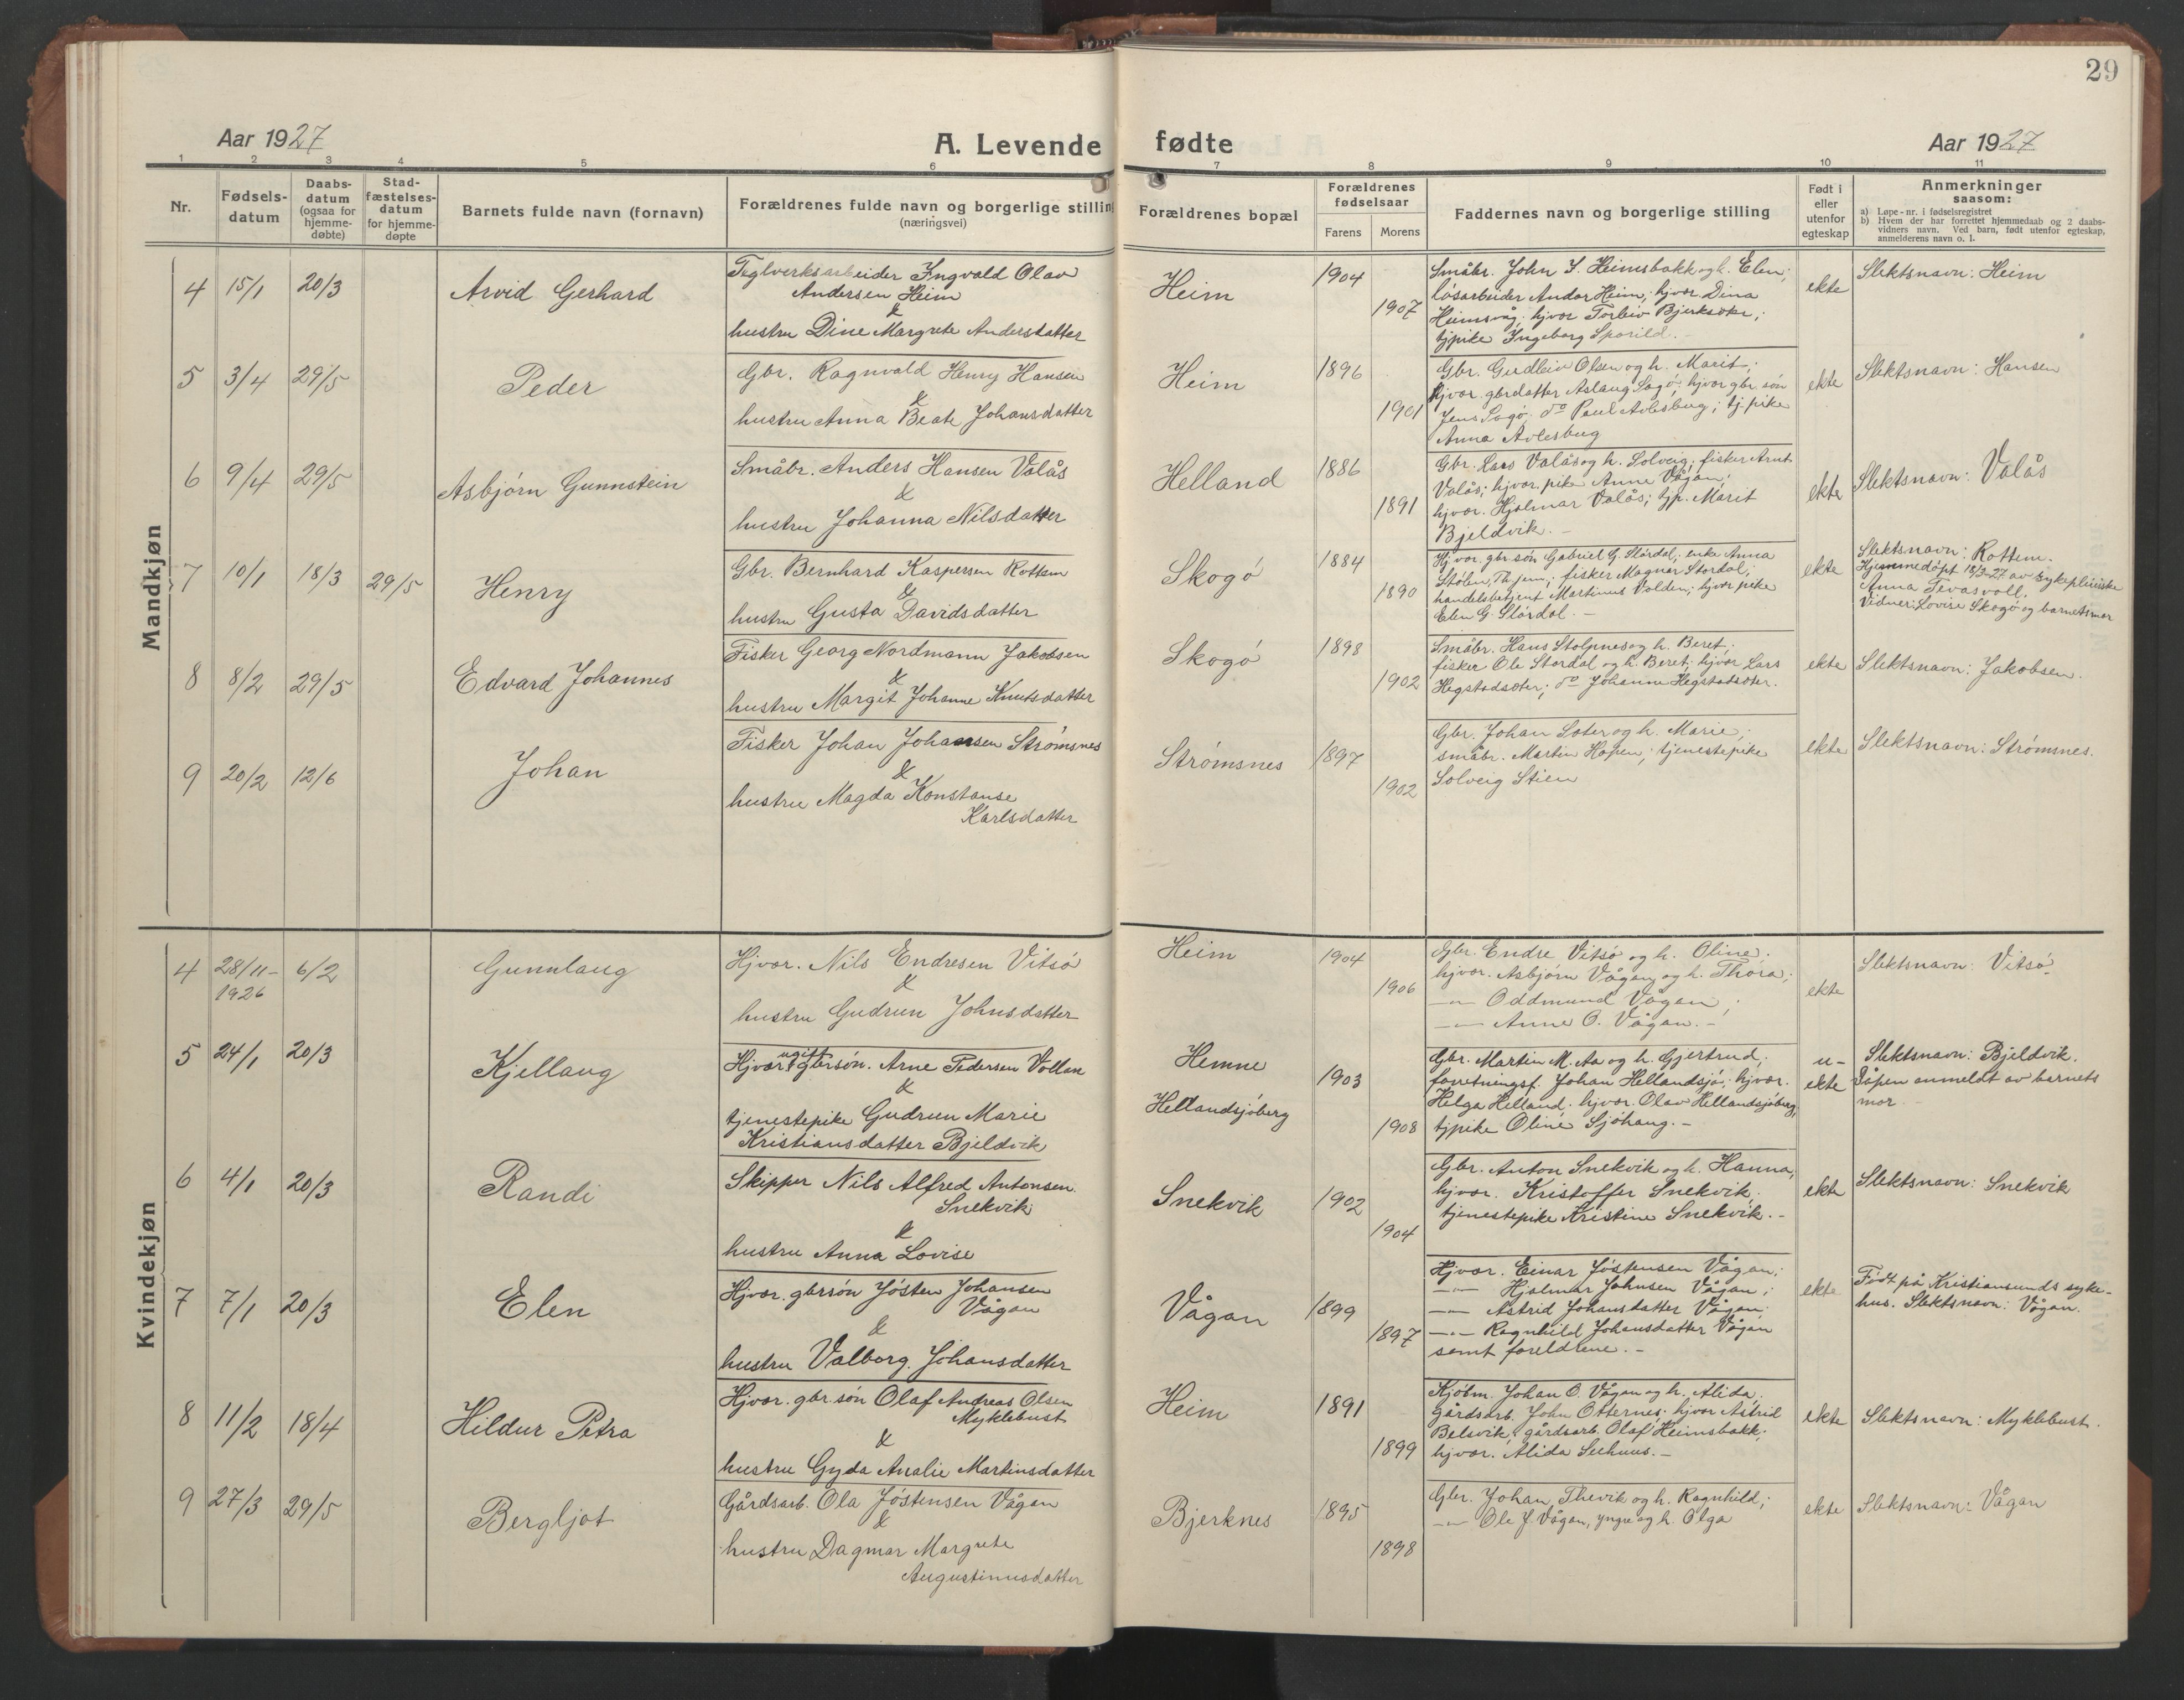 29
Aar 1927
A. Levende fødte
Aar 1927
1 2 3 4 5 6 7 8 9 10 11
Nr.
Fødsels-
datum
Daabs-
datum
(ogsaa for
hjemme-
døbte)
Stad-
fæstelses-
datum
for hjemme-
døpte
Barnets fulde navn (fornavn)
Forældrenes fulde navn og borgerlige stilling
(næringsvei)
Forældrenes bopæl
Forældrenes
fødselsaar
Farens Morens
Faddernes navn og borgerlige stilling
Født i
eller
utenfor
egteskap
Anmerkninger
saasom:
a) Løpe-nr. i fødselsregistret
b) Hvem der har forrettet hjemmedaab og 2 daabs-
vidners navn. Ved barn, født utenfor egteskap,
anmelderens navn o. l.
Mandkjøn
4 15/1 20/3
Arvid Gerhard
Teglverksarbeider Ingvald Olav
Andersen Heim
&
hustru Dine Margrete Andersdatter
Heim
1904
1907
Småbr. John I. Heimsbakk og h. Elen;
løsarbeider Andor Heim; hjvær. Dina
Heimsvåg; hjvær Torleiv Bjerksæter;
tjpike Ingeborg Sporild.-
ekte
Slektsnavn: Heim
5 3/4 29/5
Peder
Gbr. Ragnvald Henry Hansen
&
hustru Anna Beate Johansdatter
Heim
1896
1901
Gbr. Gudleiv Olsen og h. Marit;
hjvær. gbrdatter Aslaug Sagø; hjvær gbr søn
Jens Sagø. do Paul Avlesbug; tj.pike
Anna Avlesbug
ekte
Slektsnavn: Hansen
6 9/4 29/5
Asbjørn Gunnstein
Småbr. Anders Hansen Valås
&
hustru Johanna Nilsdatter
Helland
1886
1891
Gbr. Lars Valås og h. Solveig; fisker Arnt
Valås; hjvær. pike Anne Vågan;
hjvær. Hjalmar Valås; tjp. Marit
Bjeldvik.-
ekte
Slektsnavn: Valås
7 10/1 18/3 29/5
Henry
Gbr. Bernhard Kaspersen Rottem
&
hustru Gusta Davidsdatter
Skogø
1884
1890
Hjvær. gbr søn Gabriel G. Stordal; enke Anna
Stølen, Thjem; fisker Magnar Stordal;
handelsbetjent Martinus Volden; hjvær pike
Elen G. Stordal.-
ekte
Slektsnavn: Rottem.
Hjemmedøpt 18/3-27 av sykepleierske
Anna Tevasvoll.
Vidner: Lovise Skogø og barnetsmor
8 8/2 29/5
Edvard Johannes
Fisker Georg Nordmann Jakobsen
&
hustru Margit Johanne Knutsdatter
Skogø
1898
1902
Småbr. Hans Stolpnes og h. Beret;
fisker Ole Stordal og h. Beret; hjvær Lars
Hegstadsæter; do Johanne Hegstadsæter.
ekte
Slektsnavn: Jakobsen.
9 20/2 12/6
Johan
Fisker Johan Johansen Strømsnes
&
hustru Magda Konstanse
Karlsdatter
Strømsnes
1897
1902
Gbr. Johan Soter og h. Marie;
småbr. Martin Hopen; tjenestepike
Solveig Stien
ekte
Slektsnavn: Strømsnes.
Kvindekjøn
4 28/11- 6/2
1926
Gunnlaug
Hjvær. Nils Endresen Vitsø
&
hustru Gudrun Johnsdatter
Heim
1904
1906
Gbr. Endre Vitsø og h. Oline;
hjvær. Asbjørn Vågan og h. Thora;
-"- Oddmund Vågan;
-"- Anne O. Vågan.-
ekte
Slektsnavn: Vitsø
5 24/1 20/3
Kjellaug
ugift
Hjvær. gbrsøn. Arne Pedersen Vollan
&
tjenestepike Gudrun Marie
Kristiansdatter Bjeldvik
Hemne
Hellandsjøberg
1903
1908
Gbr. Martin M. Aa og h. Gjertrud;
forretningsf. Johan Hellandsjø; hjvær.
Helga Helland. hjvær. Olav Hellandsjøberg,
tjpike Oline Sjøhaug.-
u-
ekte
Slektsnavn: Bjeldvik.
Dåpen anmeldt av barnets
mor
6 4/1 20/3
Randi
Skipper Nils Alfred Antonsen
Snekvik
&
hustru Anna Lovise
Snekvik
1902
1904
Gbr. Anton Snekvik og h. Hanna;
hjvær. Kristoffer Snekvik;
tjenestepike Kristine Snekvik.-
ekte
Slektsnavn: Snekvik
7 7/1 20/3
Elen
Hjvær. gbrsøn Jøsten Johansen
Vågan
&
hustru Valborg Johansdatter
Vågan
1899
1897
Hjvær. Einar Jøstensen Vågan;
-"- Hjalmar Johnsen Vågan;
-"- Astrid Johansdatter Vågan;
-"- Ragnhild Johansdatter Vågan
samt foreldrene.-
ekte
Født på Kristiansunds syke-
hus. Slektsnavn: Vågan.
8 11/2 18/4
Hildur Petra
Hjvær. gbr søn Olaf Andreas Olsen
Myklebust
&
hustru Gyda Analie Martinsdatter
Heim
1891
1899
Kjøbm. Johan O. Vågan og h. Alida;
gårdsarb. John Otternes; hjvær Astrid
Belsvik; gårdsarb. Olaf Heimsbakk;
hjvær. Alida Seehuus.-
ekte
Slektsnavn: Myklebust.
9 27/3 29/5
Bergljot
Gårdsarb. Ola Jøstensen Vågan
&
hustru Dagmar Margrete
Augustinusdatter
Bjerknes
1895
1898
Gbr. Johan Thevik og h. Ragnhild;
-"- Ole J. Vågan, yngre og h. Olga
ekte
Slektsnavn: Vågan